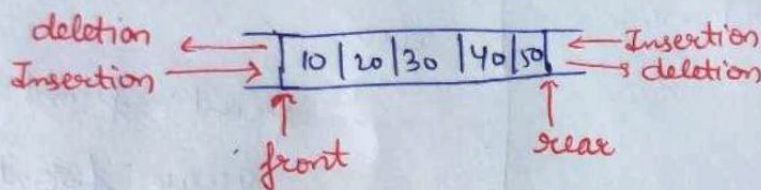 deletion
Insertion
10 | 20 | 30 | 40 | 50
Insertion
deletion
front
rear